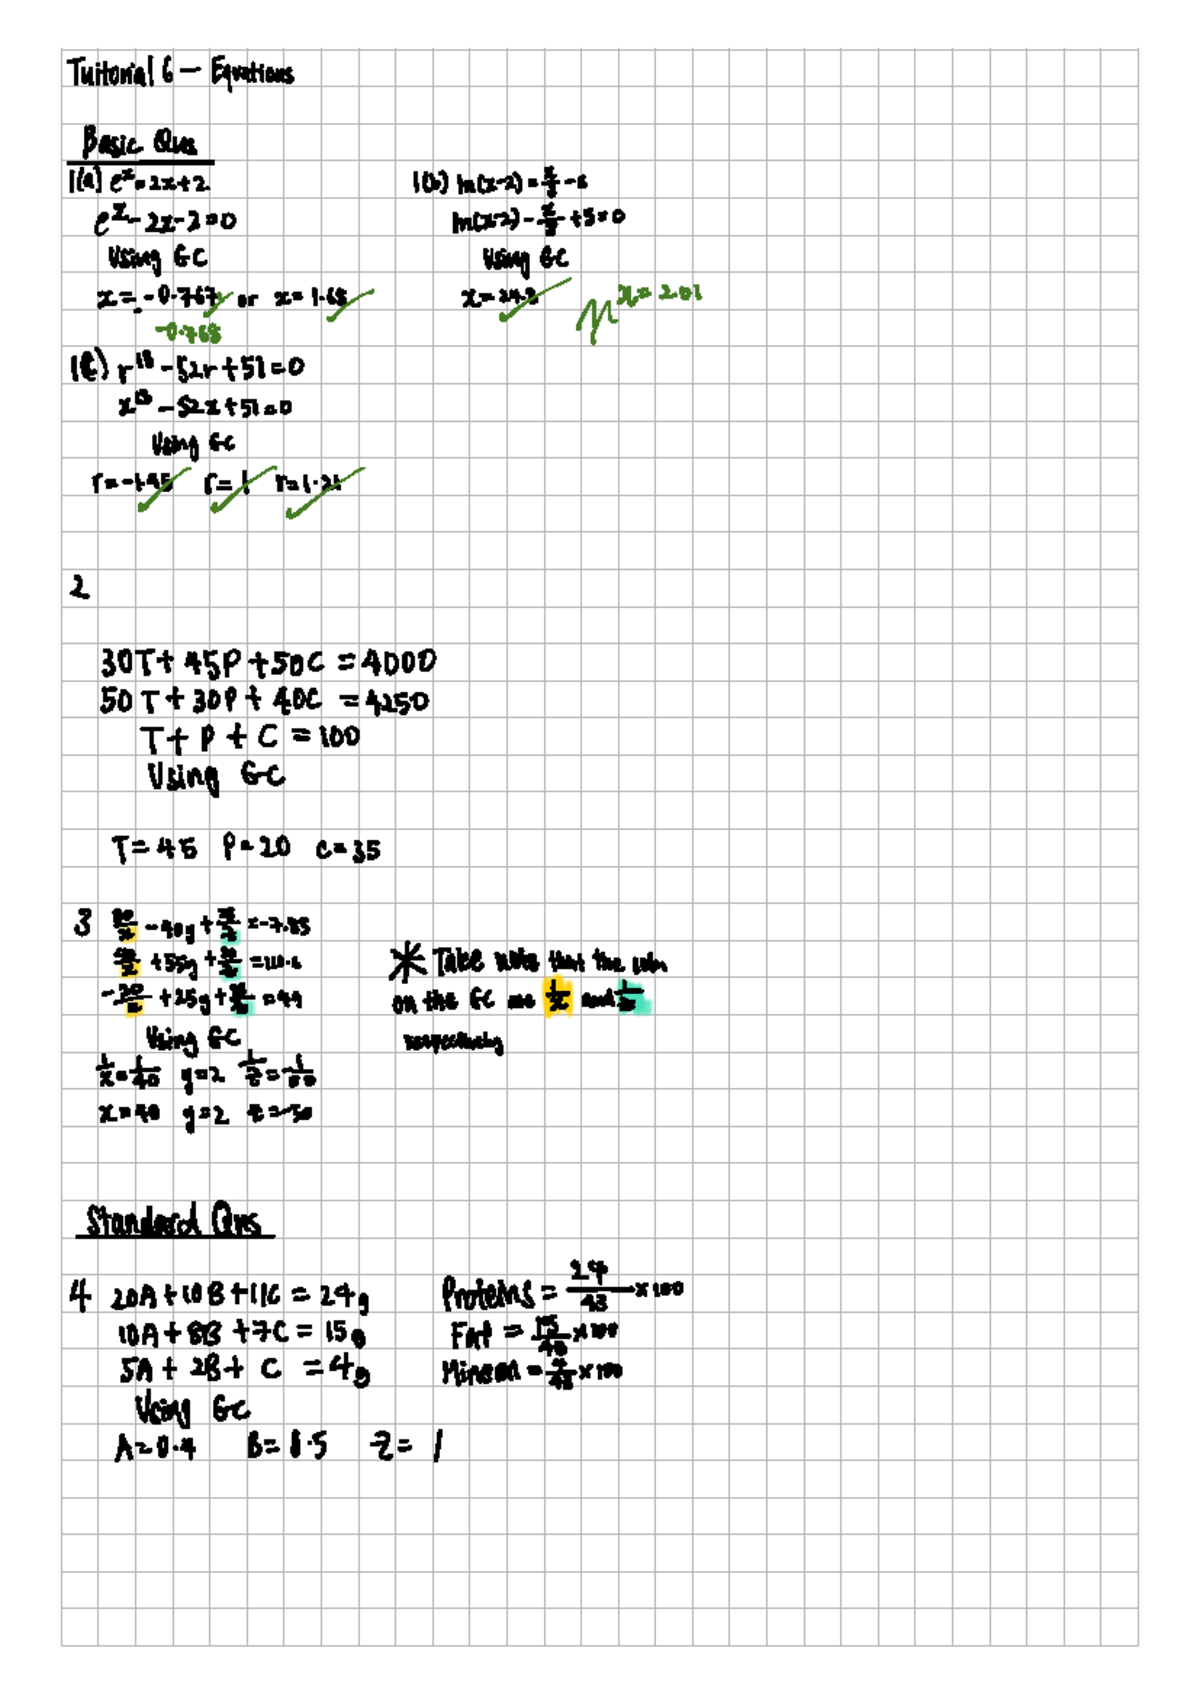 Tuitorial 6 – Equations
Basic Qns
1(a) e^x = 2x+2
e^x - 2x - 2 = 0
Using GC
x = -0.767 or x = 1.68
-0.768
1(b) ln(x-2) =
ln(x-2) - +5=0
Using GC
x = 24.
x = 2.01
1(c) r^18 - 52r + 51 = 0
x^18 - 52x + 51 = 0
Using GC
r = -1.45 r = 1 r = 1.21
2
30T + 45P + 50C = 4000
50T + 30P + 40C = 4250
T + P + C = 100
Using GC
T = 45 P = 20 C = 35
3 - 40y + = -7.85
+ 55y + =
+ 25y + = 49
Using GC
1/x = 1/40 y = 2 1/z =
x = 40 y = 2 z =
* Take note that the
on the GC are 1/x and 1/z
respectively
Standard Qns
4 20A + 10B + 11C = 24g
10A + 8B + 7C = 15g
5A + 2B + C = 4g
Using GC
A = 0.4 B = 0.5 z = 1
Proteins = 24/43 × 100
Fat = 15/43 × 100
Mineral = 4/43 × 100